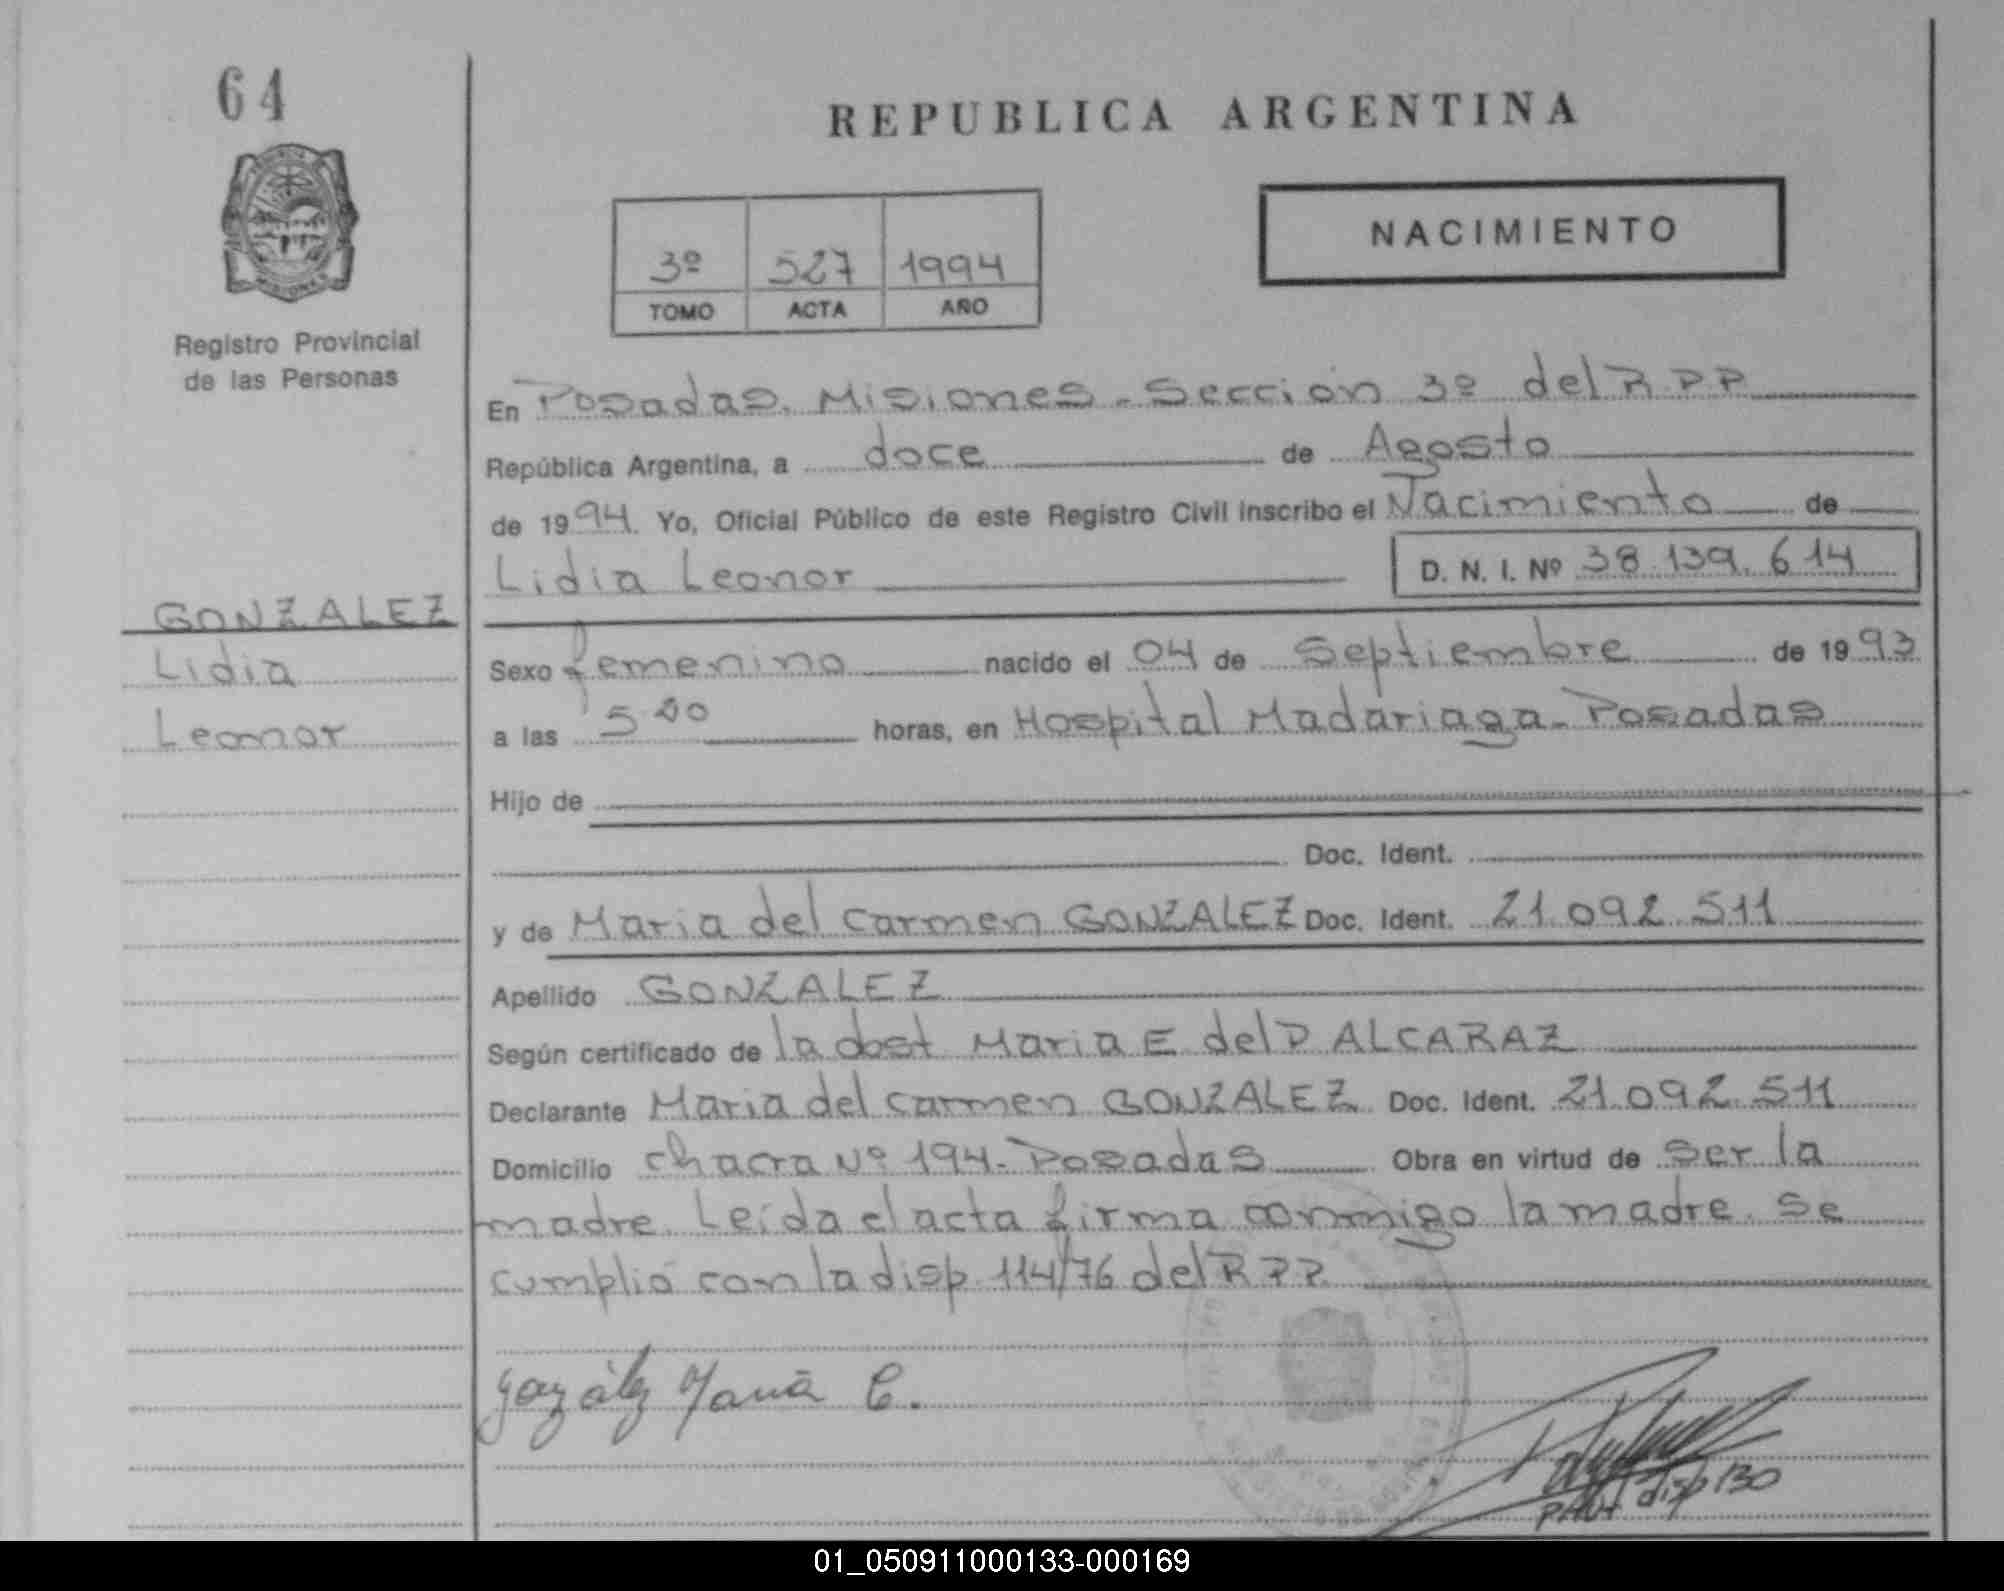 64
REPUBLICA ARGENTINA
NACIMIENTO
3º 527 1994
TOMO ACTA AÑO
Registro Provincial
de las Personas
En Posadas. Misiones - Sección 3º del R.P.P.
República Argentina, a doce de Agosto
de 1994. Yo, Oficial Público de este Registro Civil inscribo el Nacimiento de
Lidia Leonor D. N. I. Nº 38.139.614
GONZALEZ
Lidia
Leonor
Sexo femenino nacido el 04 de Septiembre de 1993
a las 5 00 horas, en Hospital Madariaga - Posadas
Hijo de
Doc. Ident.
y de Maria del Carmen GONZALEZ Doc. Ident. 21.092.511
Apellido GONZALEZ
Según certificado de la obst Maria E del P ALCARAZ
Declarante Maria del Carmen GONZALEZ Doc. Ident. 21.092.511
Domicilio chacra Nº 194 - Posadas Obra en virtud de ser la
madre. Leída el acta firma conmigo la madre. Se
cumplió con la disp. 114/76 del R.P.P.
Gozález María C.
disp 130
01_050911000133-000169